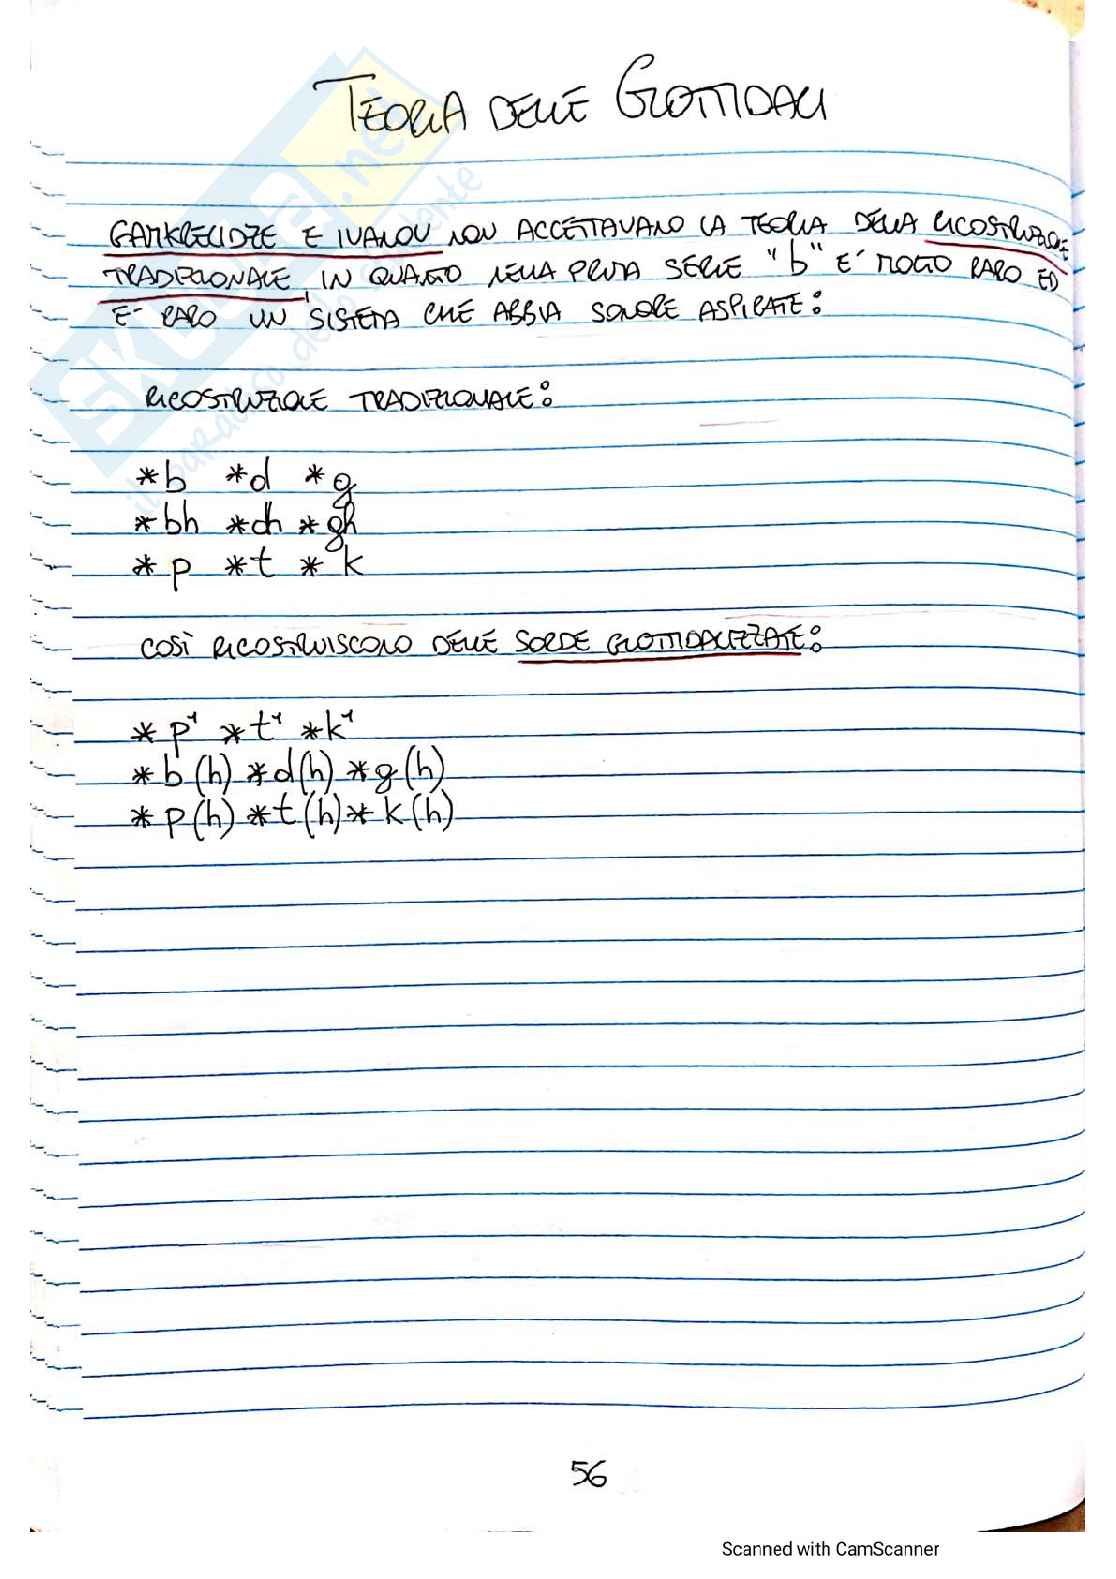 TEORIA DELLE GLOTTIDALI
GAMKRELIDZE E IVANOV NON ACCETTAVANO LA TEORIA DELLA RICOSTRUZIONE
TRADIZIONALE, IN QUANTO NELLA PRIMA SERIE "b" E' MOLTO RARO ED
E' RARO UN SISTEMA CHE ABBIA SONORE ASPIRATE:
RICOSTRUZIONE TRADIZIONALE:
*b *d *g
*bh *dh *gh
*p *t *k
COSÌ RICOSTRUISCONO DELLE SORDE GLOTTIDALIZZATE:
*p' *t' *k'
*b(h) *d(h) *g(h)
*p(h) *t(h) *k(h)
56
Scanned with CamScanner
SKUOLA.net
il paradiso dello studente